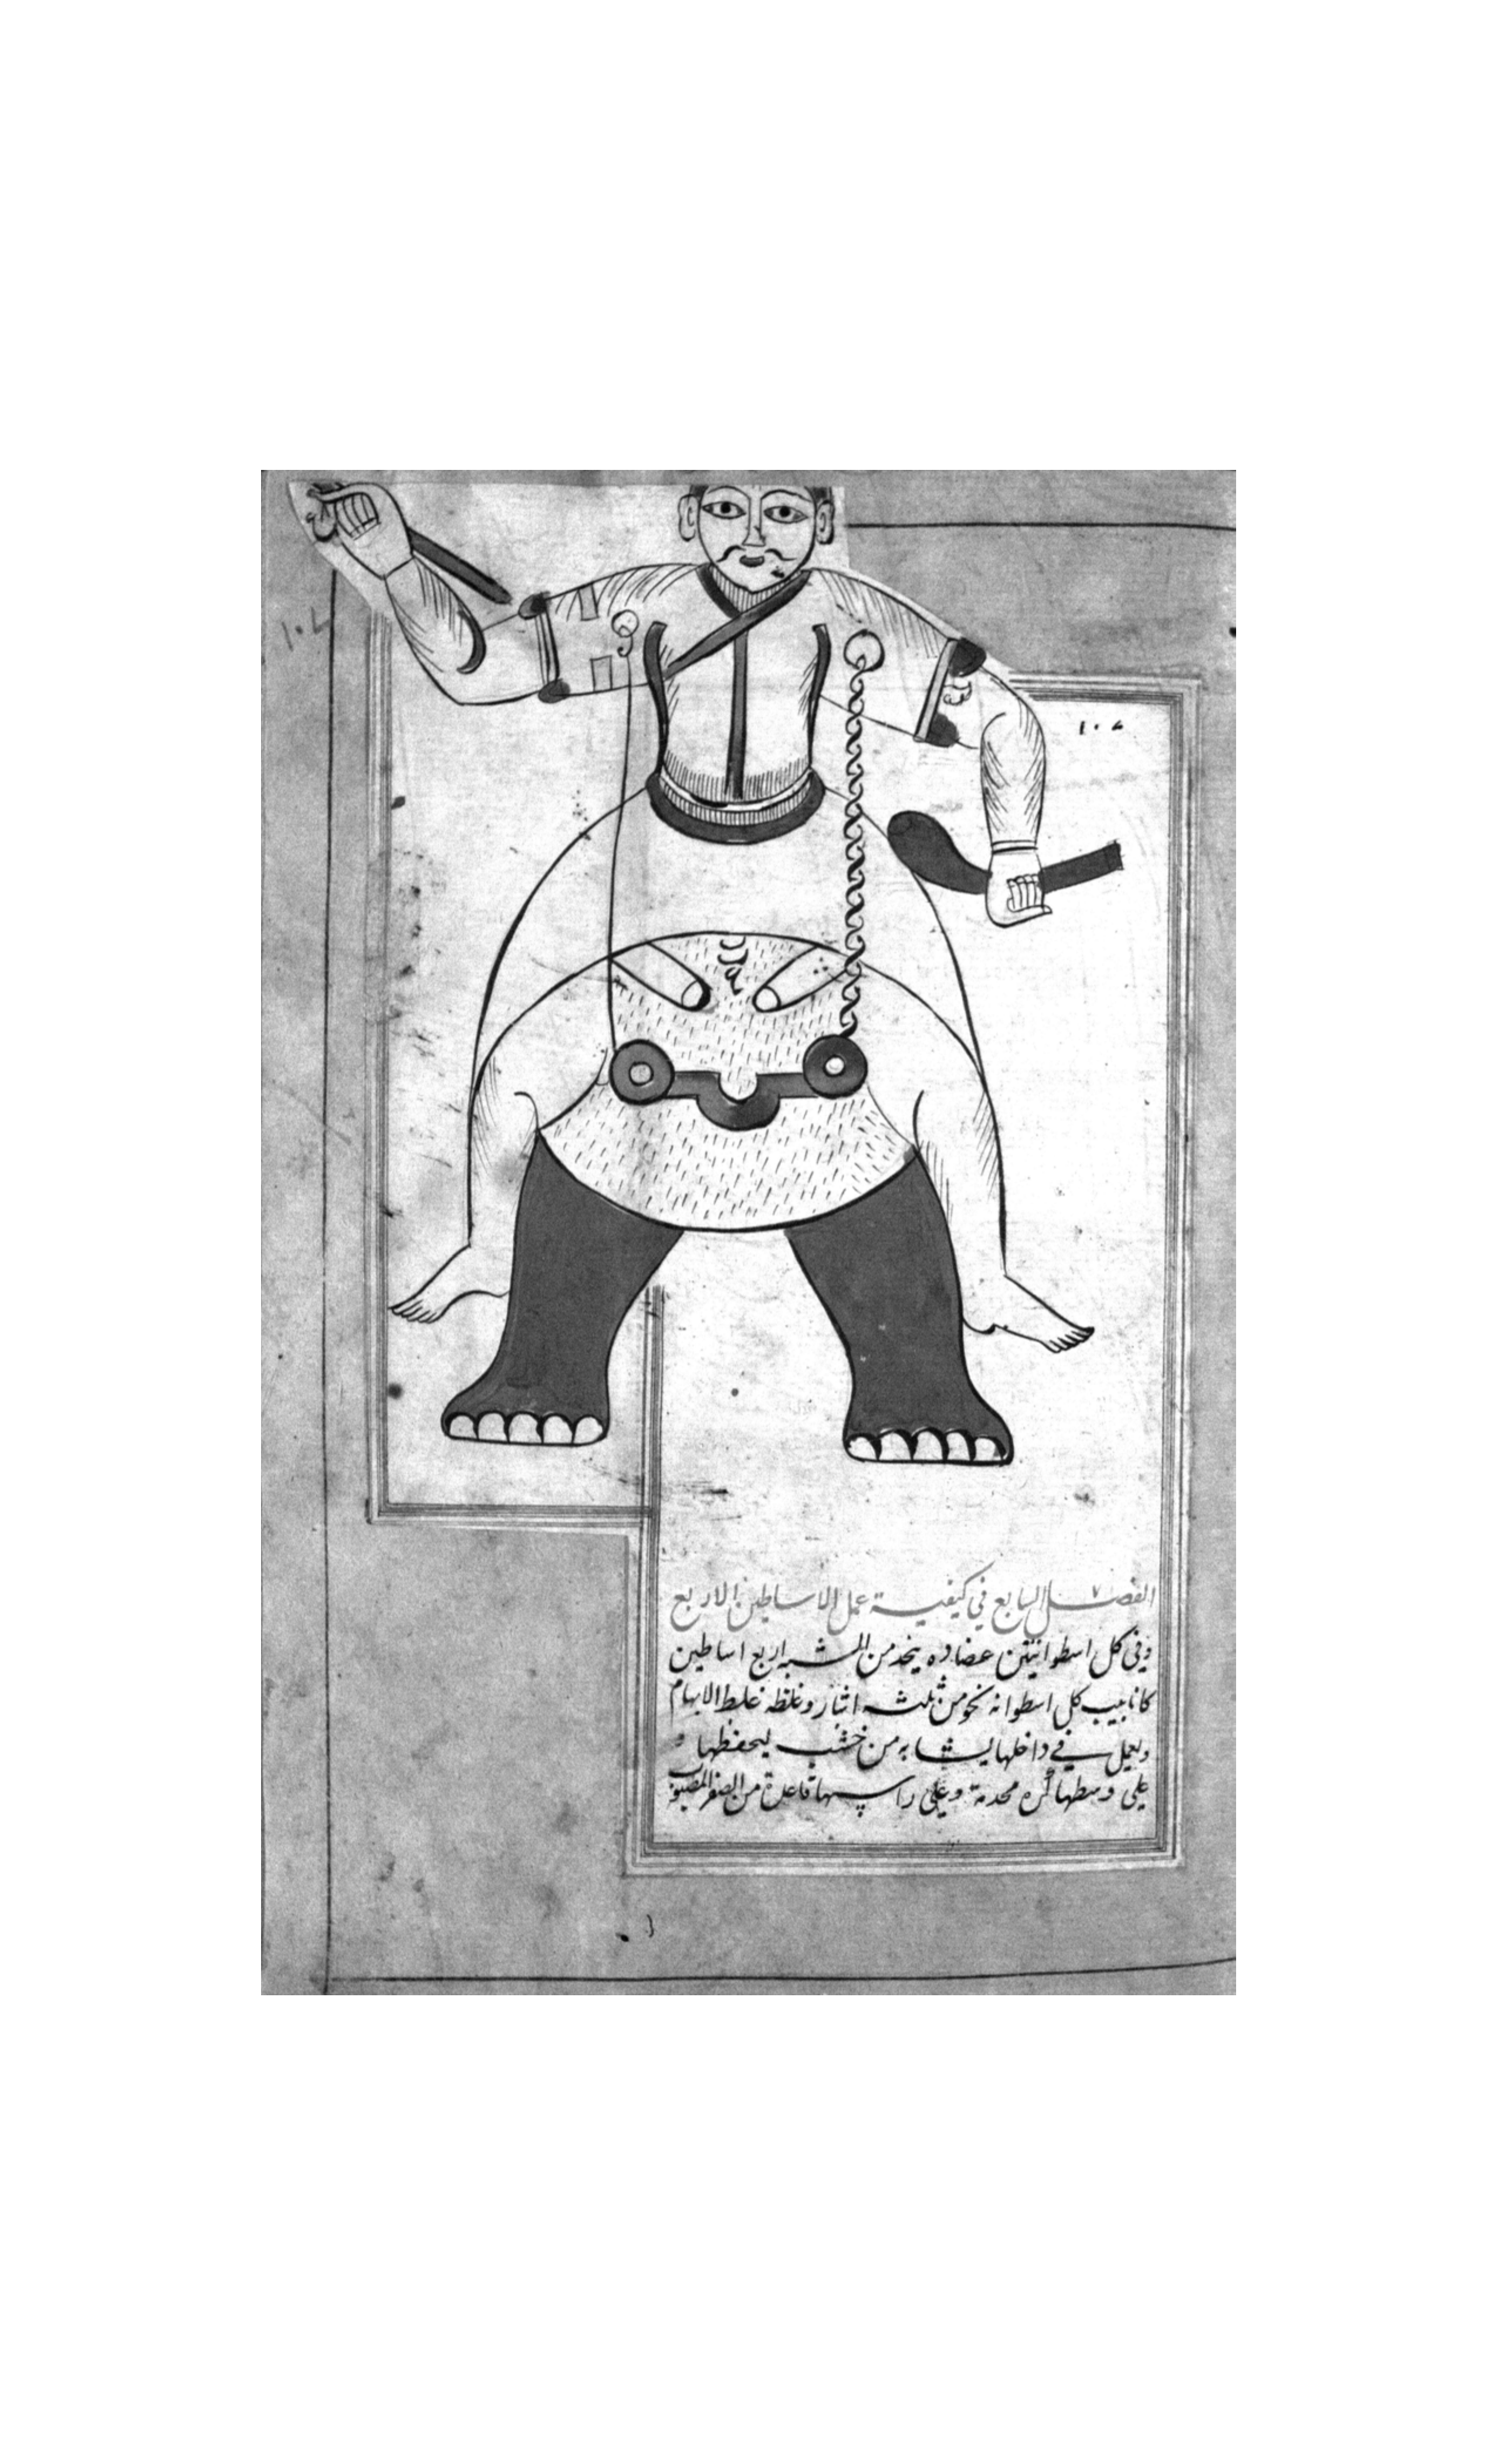 ١٠٤
١٠٤
الفصل السابع في كيفية عمل الاساطين الاربع
وفي كل اسطوانتين عضاده يتخذ من الشبه اربع اساطين
كانابيب كل اسطوانه نحو من ثلثه اشبار وغلظه غلظ الابهام
ويعمل في داخلها يشابه من خشب ليحفظها و
على وسطها كره محدمة وعلى راسها قاعدة من الصفر المصبوب